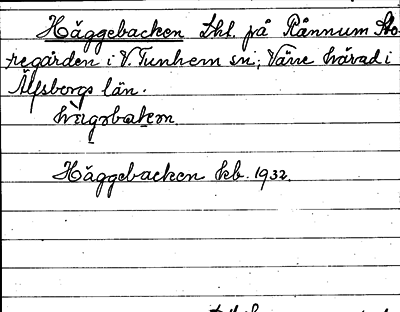 Häggebacken Lht. på Rånnum Sto-
regården i V. Tunhem sn; Väne härad i
Älfsborgs län.
Häggebacken kb. 1932.